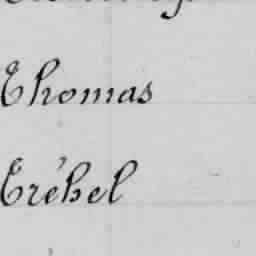 Thomas
Tréhel